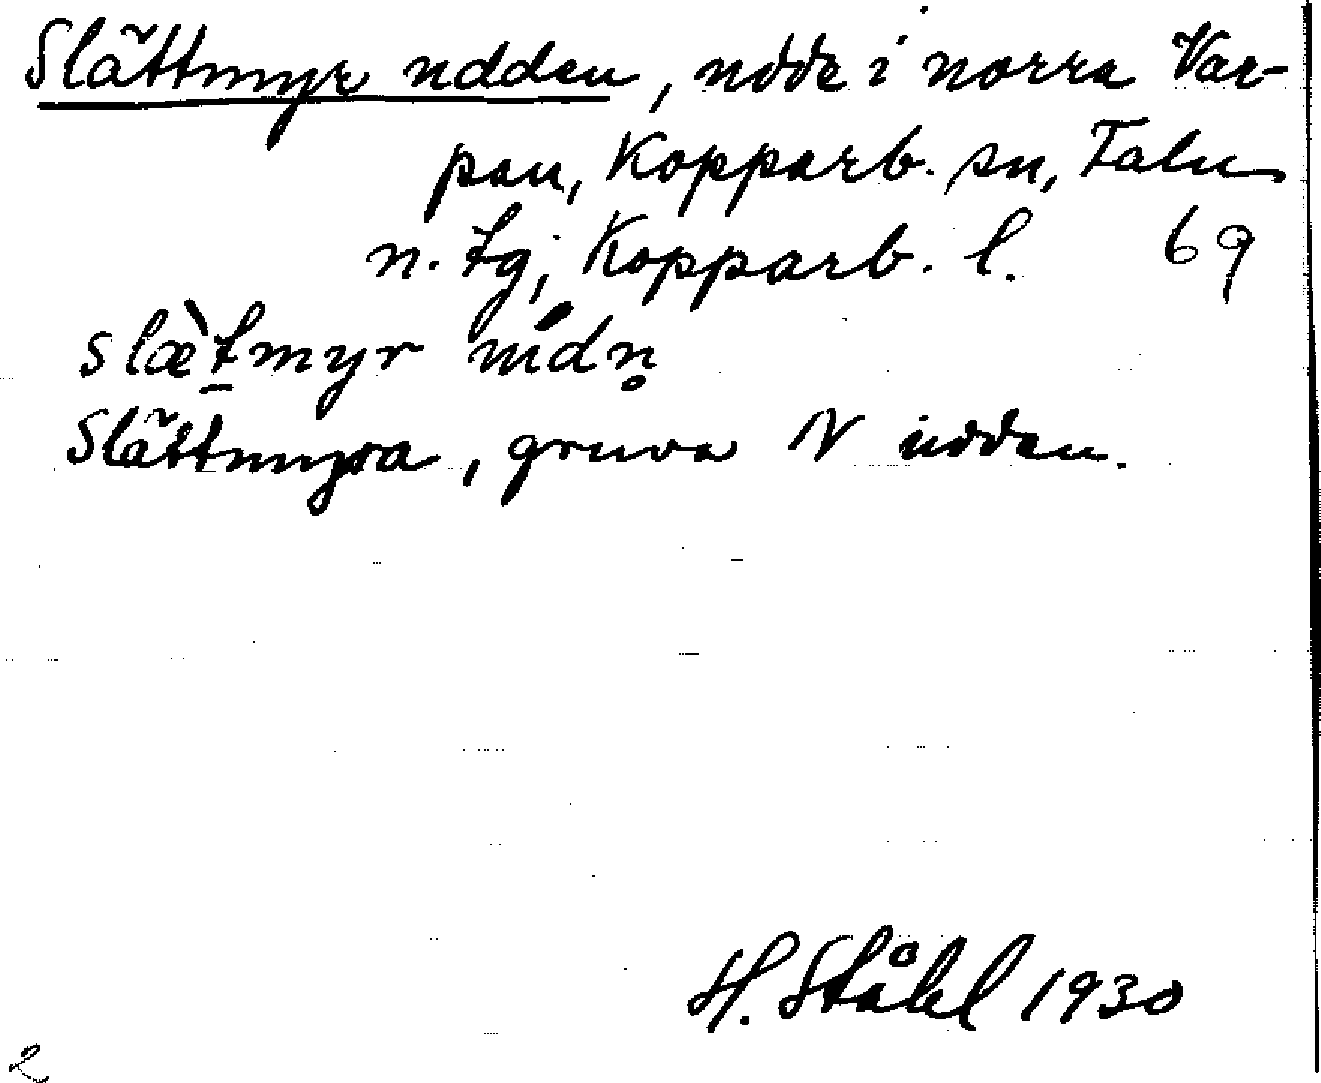 Slättmyr udden, udde i norra Var-
pan, Kopparb. sn, Falu
n. tg, Kopparb. l. 69
slæ̀t̠myr údn̥
Slättmyra, gruva N udden.
H. Ståhl 1930
2